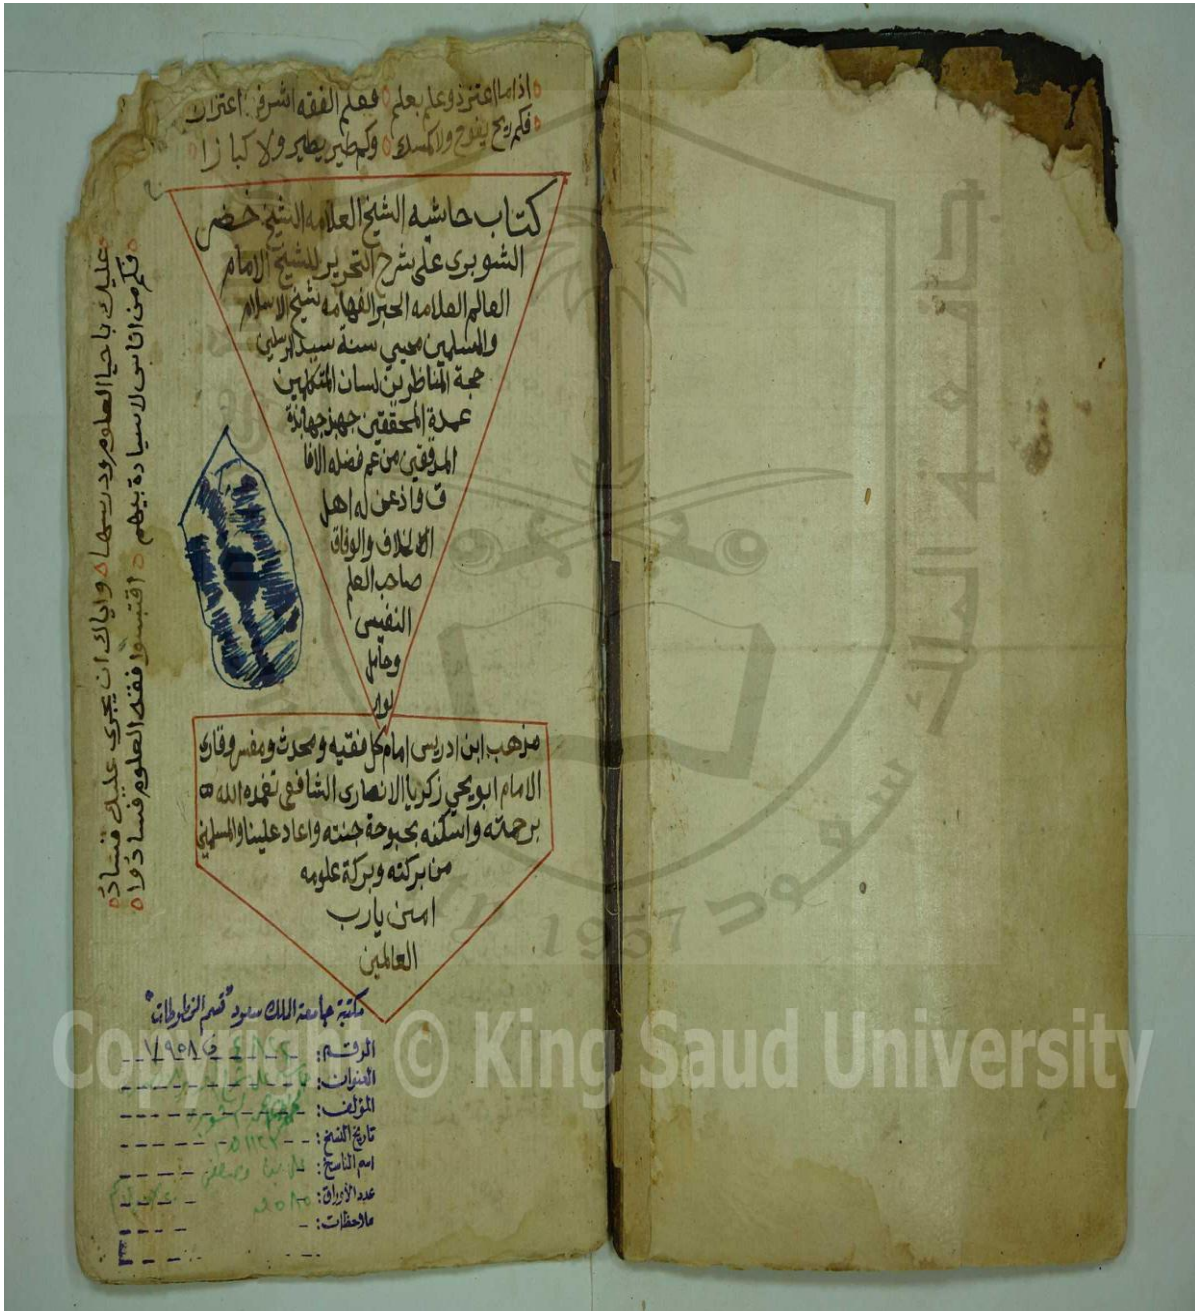 اذا ما اعتز ذو علم بعلم فعلم الفقه اشرف اعتزاز
فكم ريح يفوح ولا كمسك وكم طير يطير ولا كبازا
كتاب حاشيه الشيخ العلامه الشيخ خضر
الشوبرى على شرح التحرير للشيخ الامام
العالم العلامه الحبر الفهامه شيخ الاسلام
والمسلمين محيي سنة سيد المرسلين
حجة المناظرين لسان المتكلمين
عمدة المحققين جهبذ جهابذة
المدققين من عم فضله الافا
ق واذعن له اهل
الخلاف والوفاق
صاحب العلم
النفيس
وحامل
لواء
مذهب ابن ادريس امام كل فقيه ومحدث ومفسر وقارى
الامام ابو يحيي زكريا الانصارى الشافعى تغمده الله
برحمته واسكنه بحبوحة جنته واعاد علينا والمسلمين
من بركته وبركة علومه
امين يارب
العالمين
عليك باحيا العلوم ودرسها واياك ان يجرى عليك فساده
فكم من اناس لا سيادة بينهم اقتبسوا فقه العلوم فسادوا
مكتبة جامعة الملك سعود "قسم المخطوطات"
الرقم:
العنوان:
المؤلف:
تاريخ النسخ:
اسم الناسخ:
عدد الأوراق:
ملاحظات:
جامعة الملك سعود
1957
Copyright © King Saud University